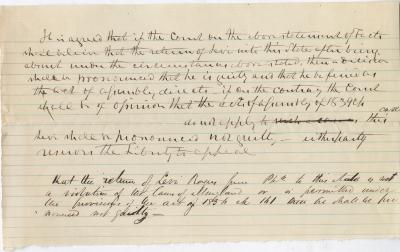 It is agreed that if the Court on the above statement of facts
shall believe that the return of Levi into this State after being
absent under the circumstances above stated, then a decision
shall be pronounced that he is guilty and that he be fined as
the act of Assembly directs - if on the contrary the Court
shall be of opinion that the acts of Assembly of 1839 C
do not apply to this case
Levi shall be pronounced not guilty, - either party
reserves the Liberty to appeal
that the return of Levi Rogers from Pha to this State is not
a violation of the laws of Maryland or is permitted under
the provisions of the act of 1834 ch 161. then he shall be pro
nounced not guilty -